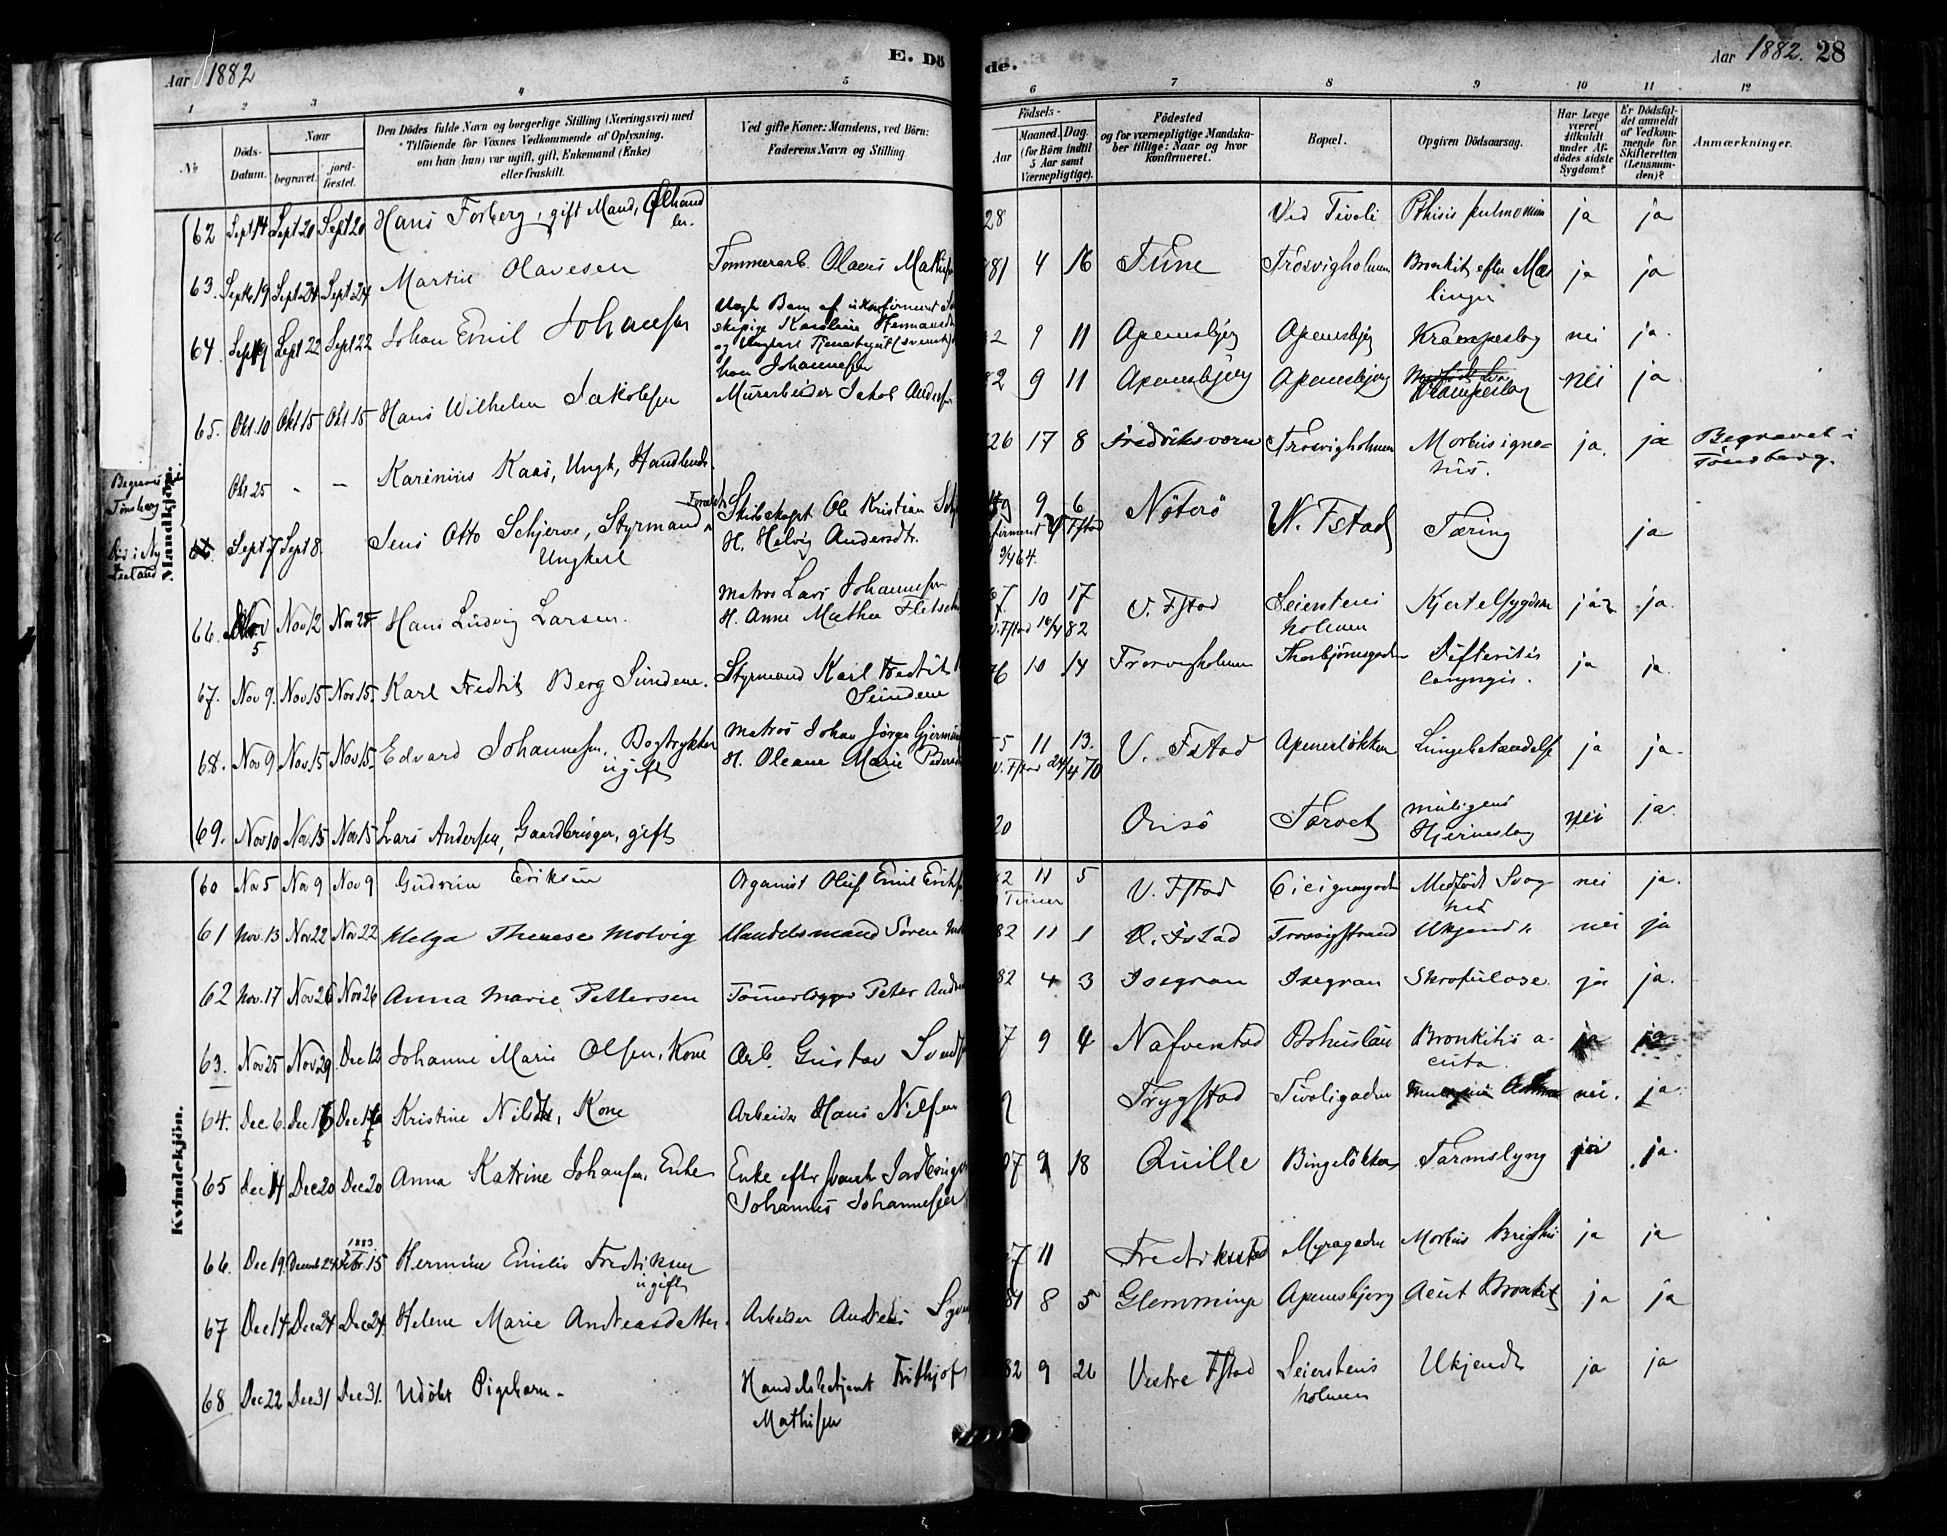 Aar 1882
E. Dö
de.
Aar 1882. 28
1 2 3 4 5 6 7 8 9 10 11 12
No
Döds-Datum.
Naar
begravet.
jord-fæstet.
Den Dödes fulde Navn og borgerlige Stilling (Næringsvei) med
Tilföiende for Voxnes Vedkommende af Oplysning,
om han (hun) var ugift, gift, Enkemand (Enke)
eller fraskilt.
Ved gifte Koner: Mandens, ved Börn:
Faderens Navn og Stilling.
Födsels-
Aar
Maaned.
Dag.
(for Börn indtil
5 Aar samt
Værnepligtige).
Födested
og for værnepligtige Mandska-
ber tillige: Naar og hvor
konfirmeret.
Bopæl.
Opgiven Dödsaarsag.
Har Læge
været
tilkaldt
under Af-
dödes sidste
Sygdom?
Er Dödsfal-
det anmeldt
af Vedkom-
mende for
Skifteretten
(Lensman-
den)?
Anmærkninger.
Mandkjön.
62 Sept 14 Sept 20 Sept 20 Hans Forberg, gift Mand, Ølhand 28 Ved Tivoli Pthisis pulmonum ja ja
ler.
63. Septb 19 Sept 24 Sept 24 Martin Olavesen Tømmerarb. Olaves 81 4 16 Tune Trosvigholmen Bronkit efter Mæs ja ja
linger
64. Sept 19 Sept 22 Sept 22 Johan Emil Johansen Uægte Barn af ukonfirmeret
skepige Karoline Hermansdtr
og Ungkarl
Johannesen
2 9 11 Apenesbjerg Apenesbjerg Krampeslag nei ja.
65. Okt. 10 Okt 15 Okt 15 Hans Wilhelm Jakobsen Murarbeider Jakob Anders 82 9 11 Apenesbjerg Apenesbjerg Krampeslag nei ja
Begravet
Tønsberg
Okt 25 - - Karenius Kaas, Ungk, Handlende 26 17 8 Fredriksværn Trosvigholmen Morbus igno-
tus. ja. ja Begravet i
Tønsberg.
Sept. 7 Sept 8. Jens Otto Schjerve, Styrmand
Ungkarl
Skibskapt Ole Kristian
H. Helvig Andersdtr.
9 6 Nøterø V. Fstad Tæring ja
9/4 64.
66. Nov 5 Nov 12 Nov 25 Hans Ludvig Larsen. Matros Lars Johannesen
H. Anne Mathea
67 10 17 V. Fstad Seierstens
holmen Kjertelsygdom ja ja.
V. Fstad 16/4 82
67. Nov 9. Nov 15 Nov 15 Karl Fredrik Berg Sundene. Styrmand Karl Fredrik
Sundene
76 10 14 Trosvigholmen Thorbjørnsgaden Difteritis
laryngis. ja ja.
68. Nov 9. Nov 15 Nov 15. Edvard Johannesen, Bogtrykker
ugift
Matros Johan Jørgen
H. Oleane Marie Peders
5 11 13. V. Fstad Apenesløkken Lungebetændelse ja ja.
V. Fstad 24/4 70
69. Nov 10 Nov 15 Nov 15 Lars Andersen, Gaardbruger, gift 20 Onsø Torvet muligens
Hjerneslag nei ja.
Kvindekjön.
60 Nov 5 Nov 9 Nov 9 Gudrun Eriksen Organist Oluf Emil Eriks 82 11 5 V. Fstad Cicignongaden Medfødt Svag
hed nei ja.
Timer
61 Nov. 13 Nov 22 Nov. 22 Helga Therese Molvig Handelsmand Søren 82 11 1 V. Fstad Trosvigstrand Ukjendt nei ja
62 Nov. 17 Nov 26 Nov 26 Anna Marie Pettersen Tømerlægger Peter Andre 82 4 3 Isegran Isegran Skrofulose. ja ja.
63. Nov 25 Nov 29 Dec 13 Johanne Marie Olsen, Kone Arb. Gustav 7 9 4 Nafverstad Bohuslän Bronkitis a-
cuta. ja ja
64. Dec 6. Dec 16 Dec 16 Kristine Nilsdtr, Kone Arbeider Hans Nilsen Trygstad Tivoligaden nei. ja.
65 Dec 14 Dec 20 Dec 20 Anna Katrine Johansen, Enke Enke efter svensk Jordbruger
Johannes Johannesen
07 9 18 Quille Bingeløkken Tarmslyng ja.
66. Dec 19. Decemb 24 1883 Febr. 15 Hermine Emilie Fredriksen
ugift
67 11 Fredrikstad Myragaden Morbus Brigthii ja ja
67 Dec 14 Dec 24 Dec 24 Helene Marie Andreasdatter. Arbeider Andreas 81 8 5 Glemminge Apenesbjerg Acut Bronkit ja ja
68 Dec 22 Dec 31 Dec 31. Udøbt Pigebarn. Handelsbetjent Frithjof
Mathisen
82 9 26 Vestre Fstad Seierstens
holmen Ukjendt ja ja